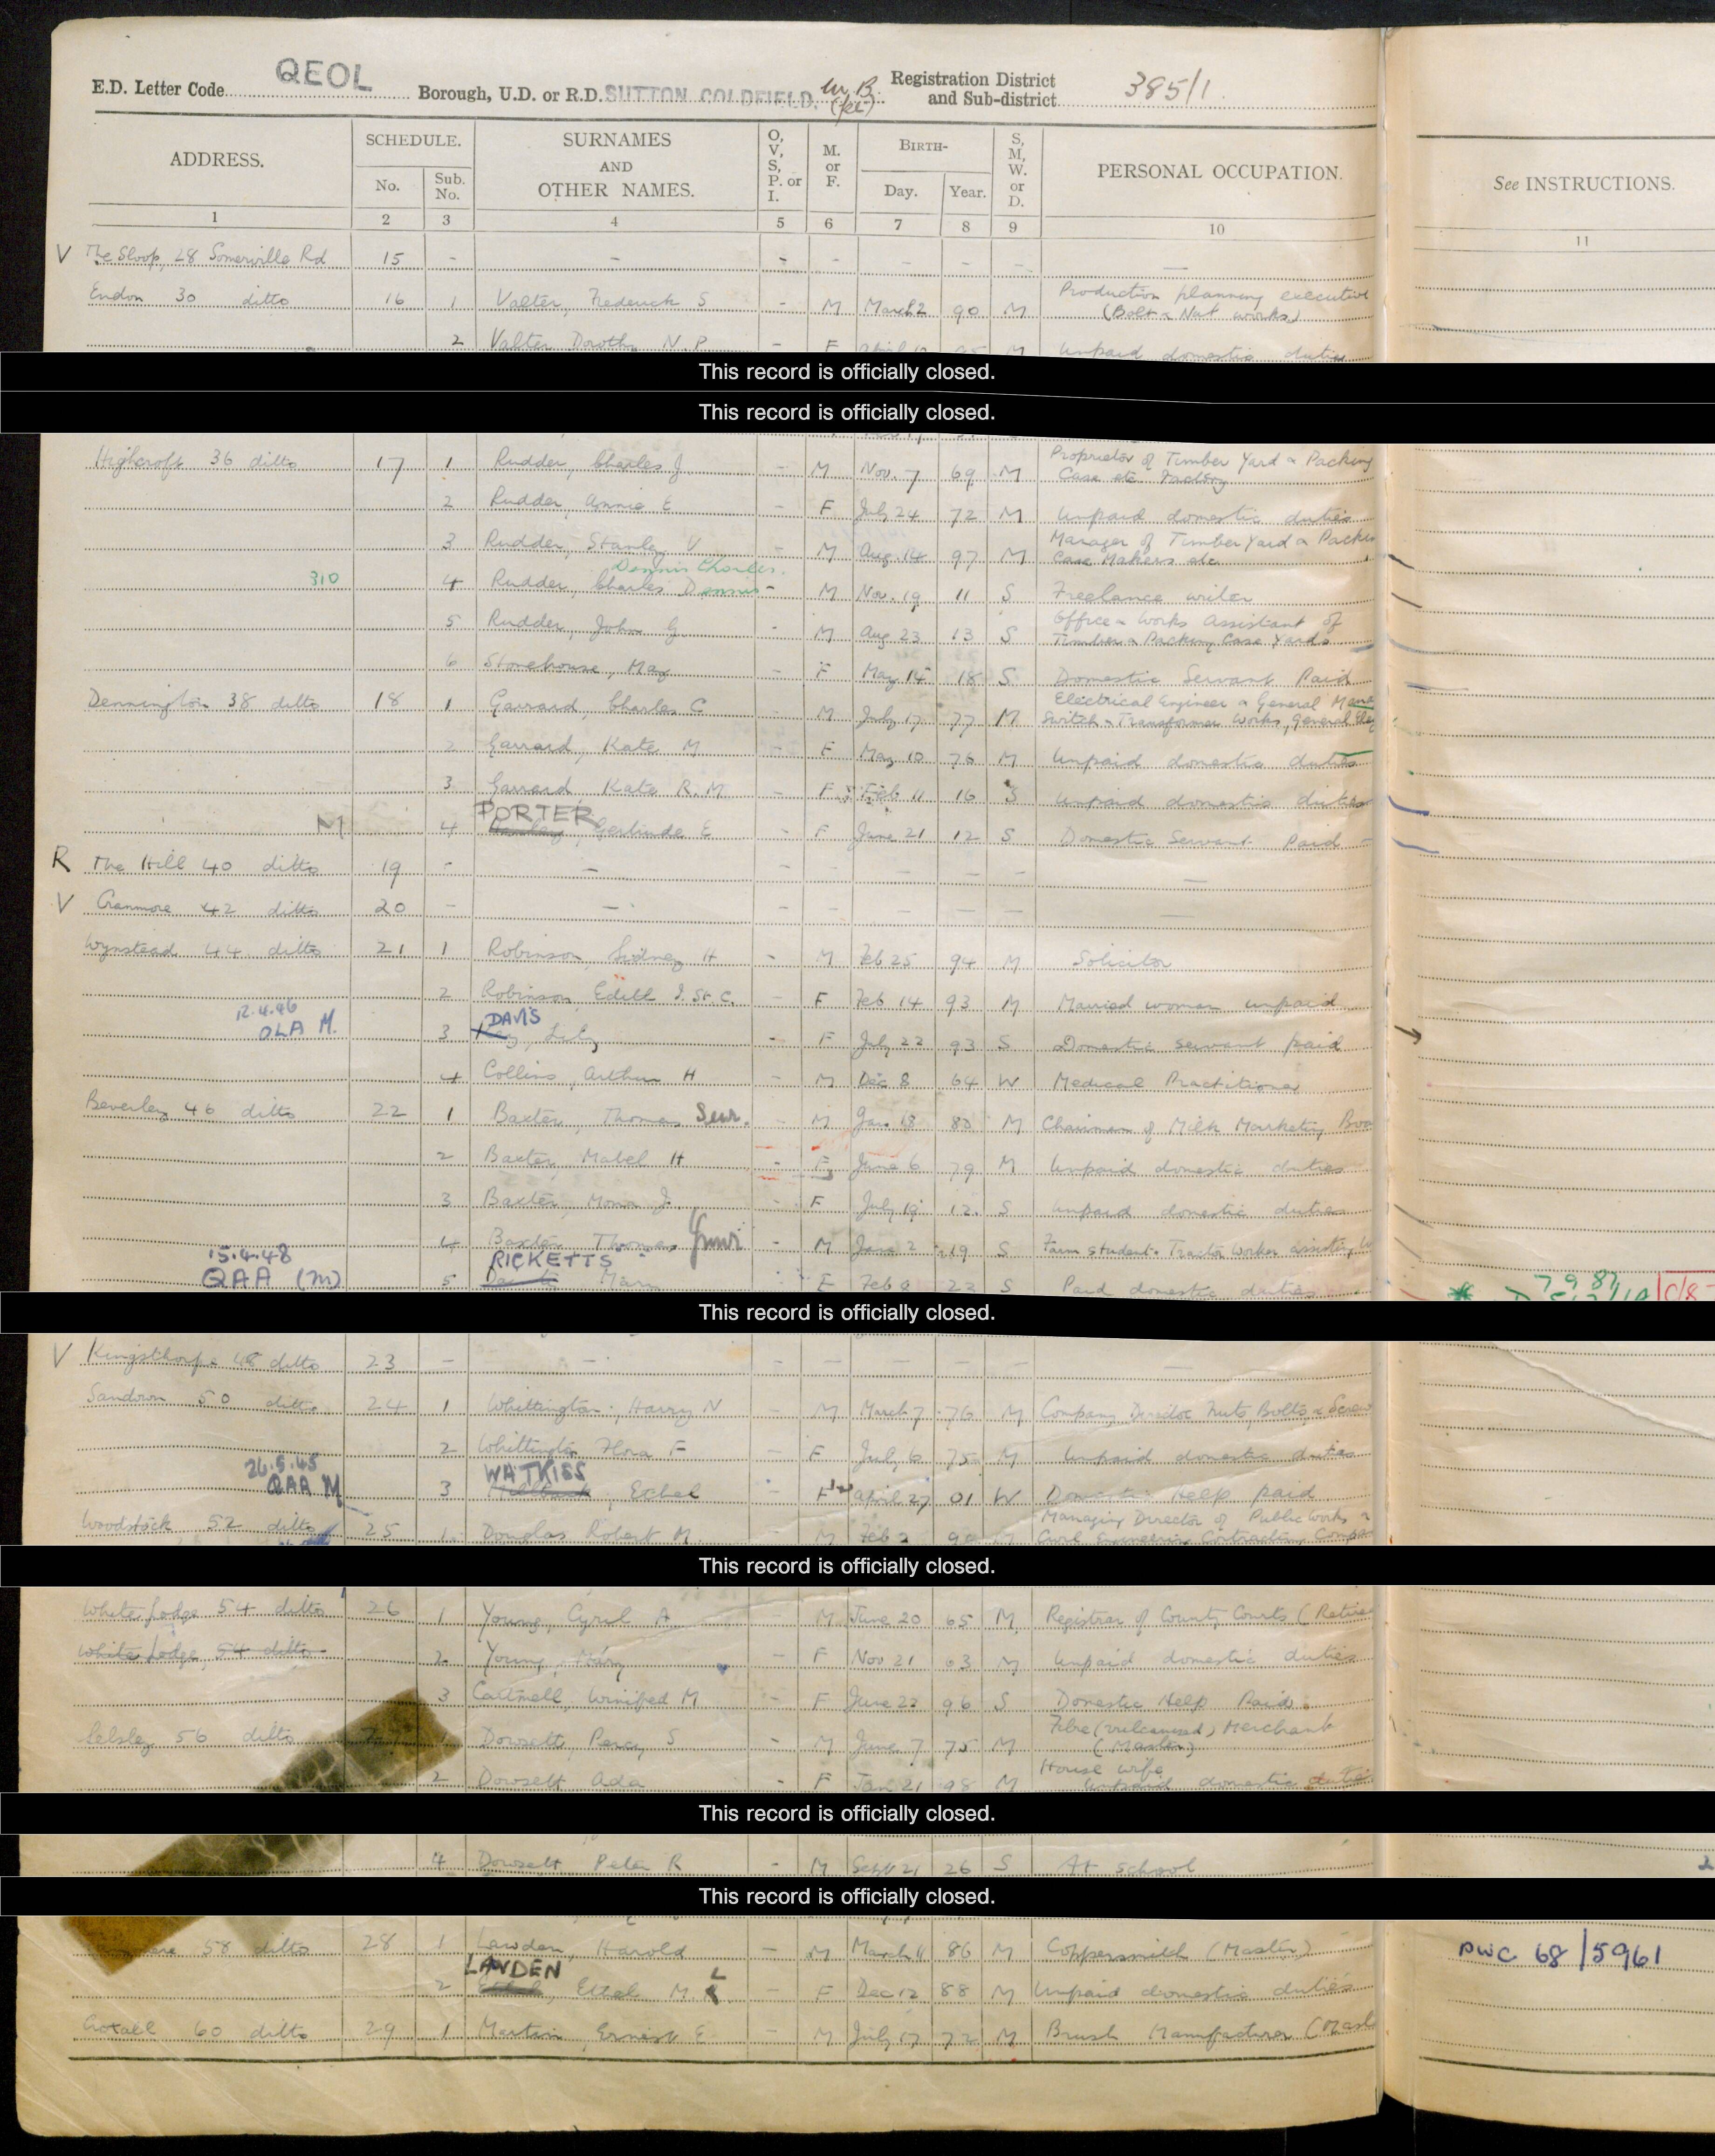 E.D. Letter Code QEOL Borough, U.D. or R.D. SUTTON COLDFIELD. M.B. Registration District and Sub-district 385/1
ADDRESS. SCHEDULE. No. Sub. No. SURNAMES AND OTHER NAMES. O, V, S, P. or I. M. or F. BIRTH- Day. Year. S, M, W. or D. PERSONAL OCCUPATION. See INSTRUCTIONS.
1 2 3 4 5 6 7 8 9 10 11
V The Sloop, 28 Somerville Rd 15 - - - - - - - -
Endon 30 ditto 16 1 Valter, Frederick S - M March 2 90 M Production planning executive (Bolt & Nut works)
2 Valter Dorothy N.P - F April M Unpaid domestic duties
This record is officially closed.
This record is officially closed.
Highcroft 36 ditto 17 1 Rudder, Charles J - M Nov. 7 69 M Proprietor of Timber Yard & Packing Case etc Factory
2 Rudder, Annie E - F July 24 72 M Unpaid domestic duties
3 Rudder, Stanley V - M Aug. 14 97 M Manager of Timber Yard & Packing Case Makers etc
Dennis Charles.
310 4 Rudder, Charles Dennis - M Nov. 19 11 S Freelance writer
5 Rudder, John G - M Aug 23 13 S Office & Works Assistant of Timber & Packing Case Yards
6 Stonehouse, May - F May 15 18 S Domestic Servant Paid
Dennington 38 ditto 18 1 Garrard, Charles C - M July 17 77 M Electrical Engineer & General Mana Switch & Transformer Works, General Elec
2 Garrard, Kate M - F May 10 76 M Unpaid domestic duties
3 Garrard Kate R.M. - F Feb 11 16 S Unpaid domestic duties
PORTER
M 4 Gerlinde E - F June 21 12 S Domestic Servant Paid
R The Hill 40 ditto 19 - - - - - - - -
V Cranmore 42 ditto 20 - - - - - - - -
Wynstead 44 ditto 21 1 Robinson, Sidney H - M Feb 25 94 M Solicitor
2 Robinson, Edith I. St C. - F Feb 14 93 M Married woman unpaid
12.4.46 DAVIS
OLA M. 3 Lily - F July 22 93 S Domestic servant paid
4 Collins, Arthur H - M Dec 8 64 W Medical Practitioner
Beverley 46 ditto 22 1 Baxter, Thomas Senr. - M Jan 18 M Chairman of Milk Marketing Boa
2 Baxter, Mabel H - F June 6 79 M Unpaid domestic duties
3 Baxter, Mona J. - F July 19 12 S Unpaid domestic duties
4 Baxter Thomas Junr - M June 2 19 S Farm student. Tractor Worker assisting
15.4.48 RICKETTS
QAA (M) 5 Mary F Feb 22 S Paid domestic duties
This record is officially closed.
V Kingsthorpe 48 ditto 23 - - - - - - - -
Sandown 50 ditto 24 1 Whittington, Harry N - M March 7 76 M Company Director Nuts, Bolts, & Screw
2 Whittington Flora F - F July 6 75 M Unpaid domestic duties
26.5.45 WATKISS
QAA M 3 Ethel - F April 27 01 W Domestic Help paid
Woodstock 52 ditto 25 1 Douglas Robert M M Feb 2 M Managing Director of Public Works & Civil Engineering Contracting Compa
This record is officially closed.
White Lodge 54 ditto 26 1 Young, Cyril A - M June 20 65 M Registrar of County Courts (Retire
White Lodge, 54 ditto 2 Young, Mary - F Nov 21 63 M Unpaid domestic duties
3 Cattnell, Winifred M - F June 22 96 S Domestic Help Paid
Selsley 56 ditto Dowsett, Percy S - M June 7 75 M Fibre (vulcanised) Merchant (Master)
2 Dowsett Ada - F Jan 21 98 M House wife unpaid domestic duties
This record is officially closed.
4 Dowsett Peter R - M Sept 21 26 S At school
This record is officially closed.
58 ditto 28 1 Lawden, Harold - M March 11 86 M Coppersmith (Master) DWC 68/5961
LAWDEN
2 Ethel M. L - F Dec 12 88 M Unpaid domestic duties
60 ditto 29 1 Martin, Ernest E - M July 17 72 M Brush Manufacturer (Mast